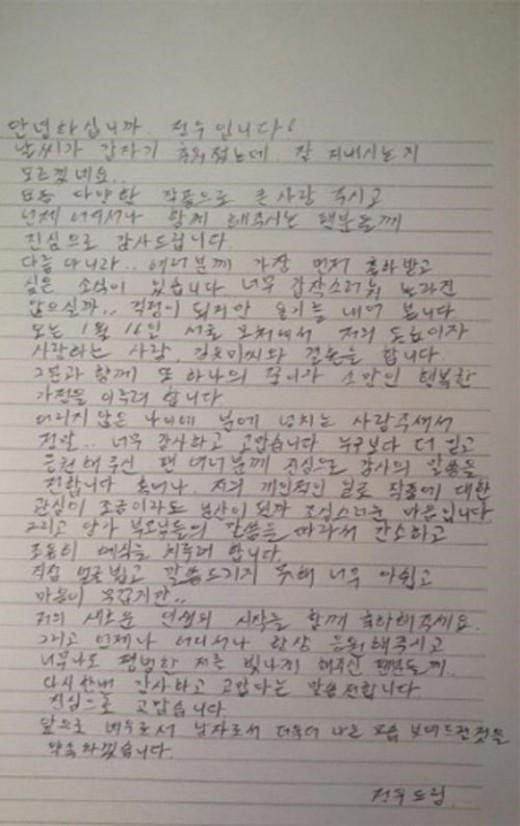 안녕하십니까. 건우입니다!
날씨가 갑자기 추워졌는데. 잘 지내시는지
모르겠네요..
다양한 작품으로 큰사랑 주시고
언제 어디서나 함께 해주시는 팬분들께
진심으로 감사드립니다.
다름 아니라.. 여러분께 가장 먼저 축하받고
싶은 소식이 있습니다 너무 갑작스러워 놀라진
않으실까.. 걱정이 되지만 용기를 내어 봅니다
오는 1월 16일 서울 모처에서 저의 도효이자
사랑하는 사람. 결혼을 합니다
그분과 함께 또 하나의 꿈이자 소망인 행복한
가정을 이루려 합니다.
어리지 않은 나이에 분에 넘치는 사랑주셔서
정말.. 너무 감사하고 고맙습니다 누구보다 더 믿고
응원해주신 팬 여러분께 진심으로 감사의 말씀을
전합니다 혹여나. 저의 개인적인 일로 작품에 대한
관심이 조금이라도 분산이 될까 조심스러운 마음입니다
그리고 양가 부모님들의 말씀을 따라서 간소하고
조용히 예식을 치루려 합니다.
직접 얼굴뵙고 말씀드리지 못해 너무 아쉽고
마음이 무겁지만..
저의 새로운 인생의 시작을 함께 축하해주세요.
그리고 언제나 어디서나 항상 응원해주시고
너무나도 평범한 저를 빛나게 해주신 팬분들께..
다시한번 감사하고 고맙다는 말씀전합니다
진심으로 고맙습니다
앞으로 배우로서 남자로서 더욱더 나은 모습 보여드릴것을
약속하겠습니다.
건우드림.